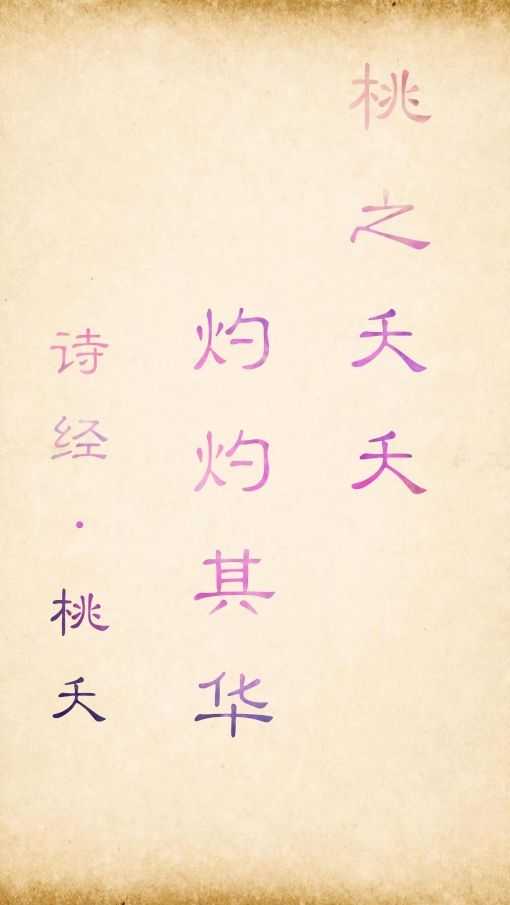 桃之夭夭
灼灼其华
诗经·桃夭